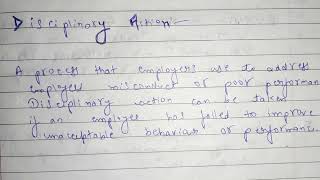 Disciplinary Action -
A process that employers use to address
employee misconduct or poor performan
Disciplinary action can be taken
if an employee has failed to improve
unacceptable behaviour or performance.